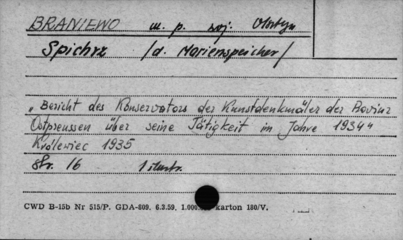 BRANIEWO m. p. woj. Olsztyn
Spichrz /d. Marienspeicher/
"Bericht des Konservators der Kunstdenkmäler der Provinz
Ostpreussen über seine Tätigkeit im Jahre 1934"
Królewiec 1935
Str. 16 1 ilustr.
CWD B-15b Nr 515/P. GDA-609. 6.2.59. 1.000 karton 180/V.